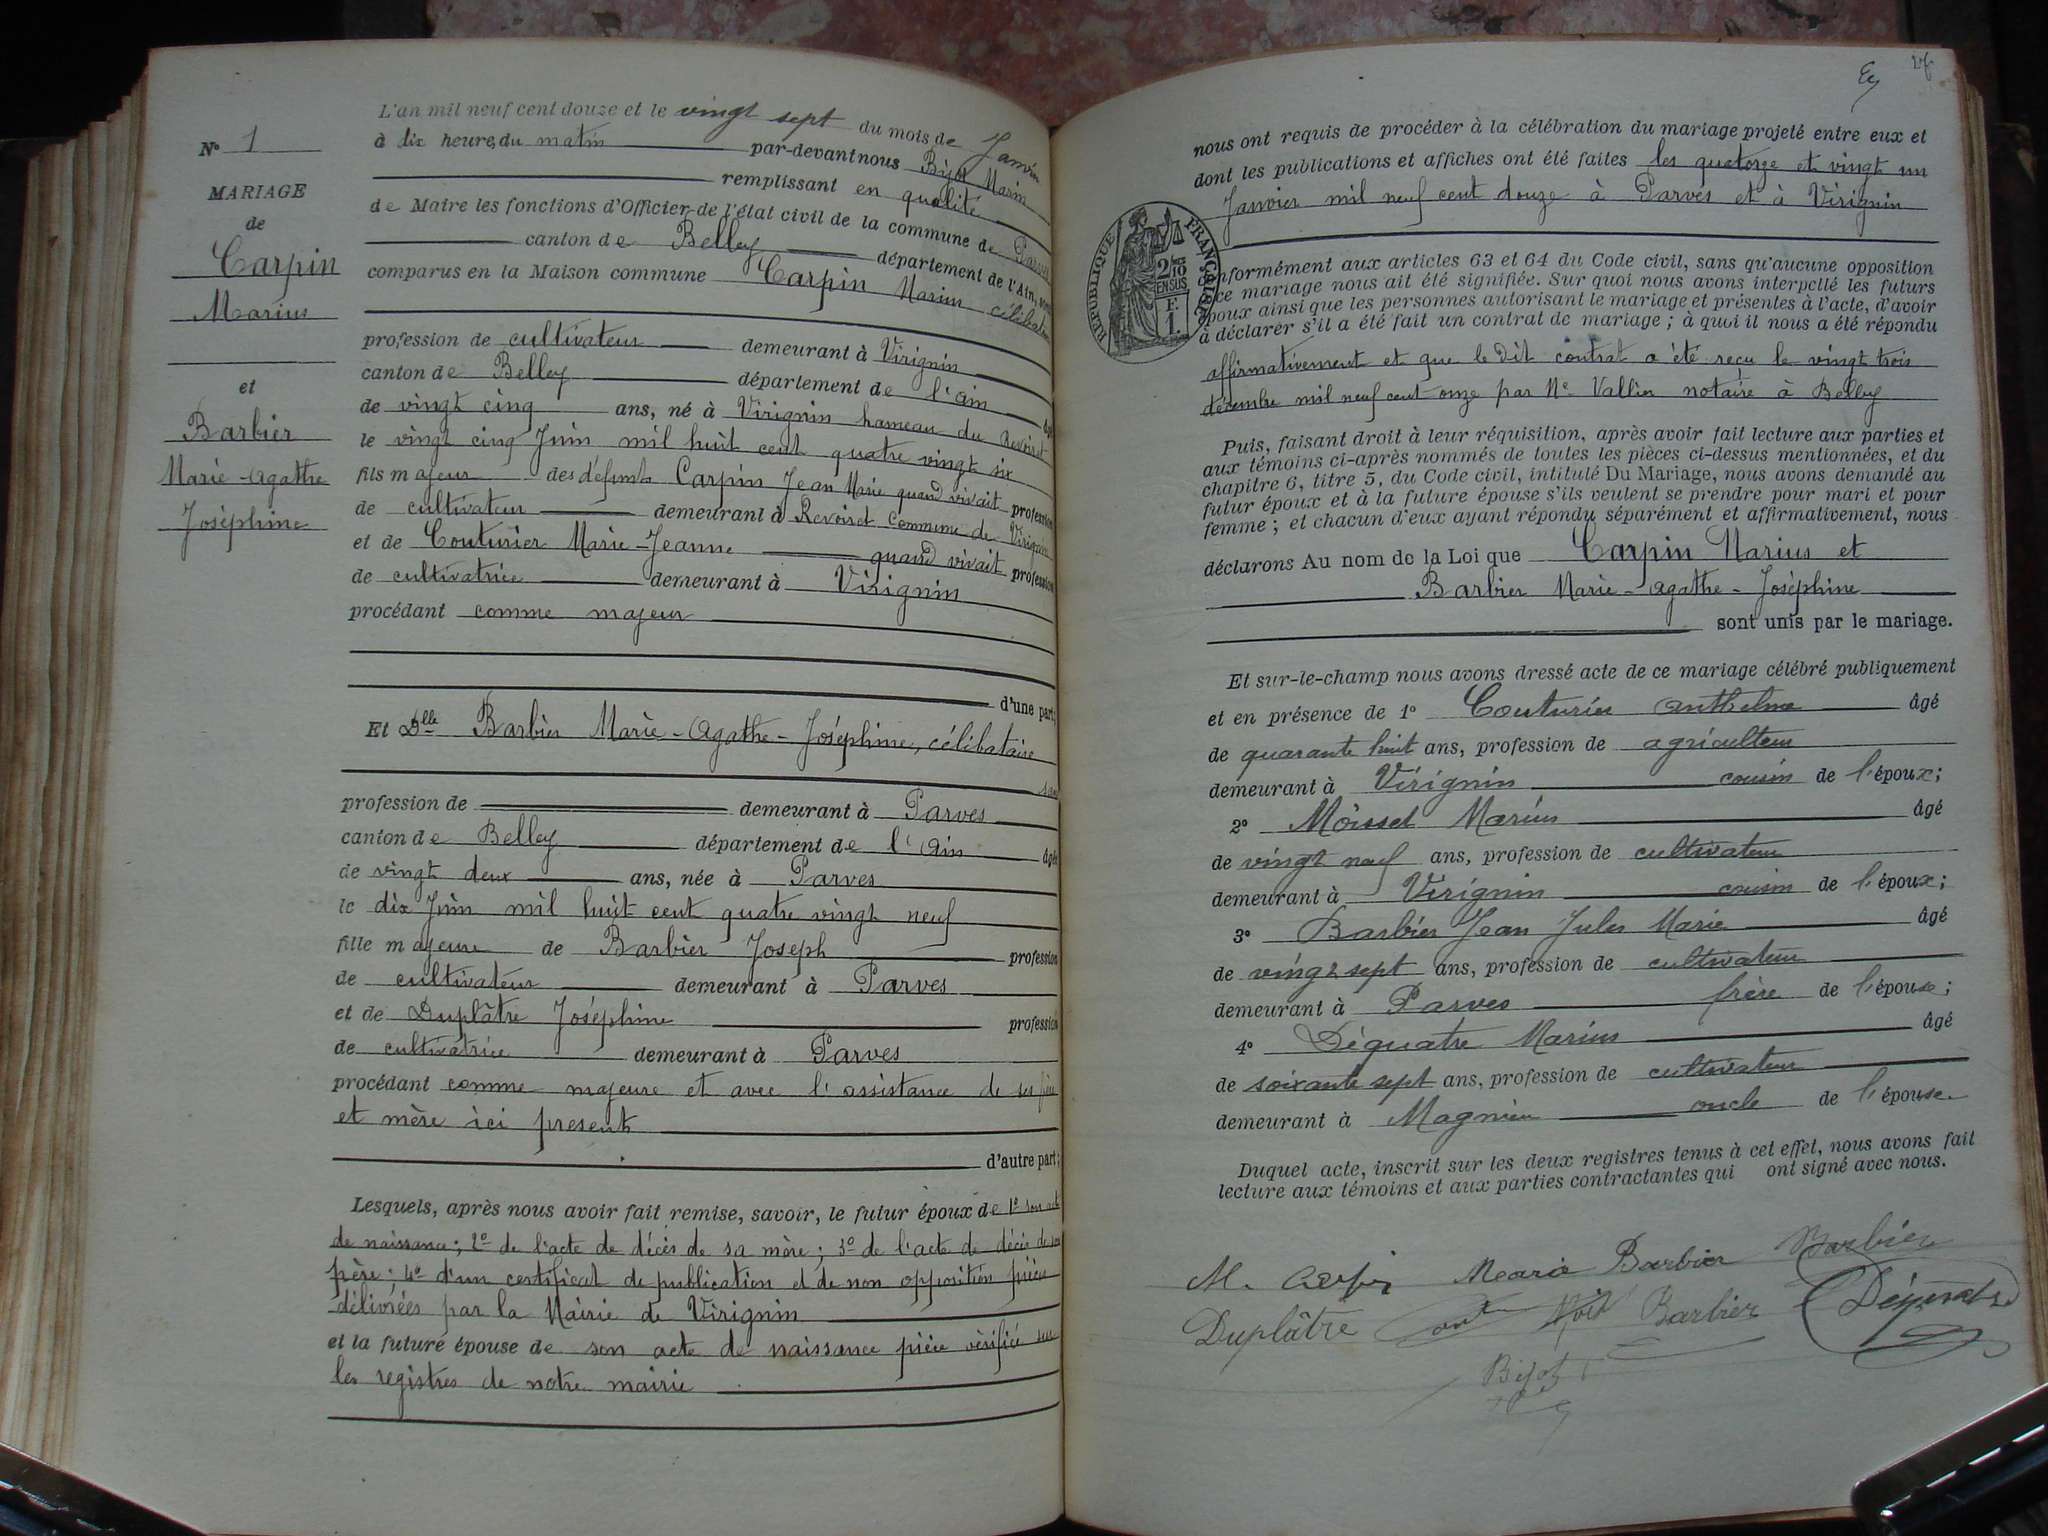 N° 1
MARIAGE
de
Carpin
Marius
et
Barbier
Marie-Agathe
Joséphine
L'an mil neuf cent douze et le vingt sept du mois de Janvier
à dix heures du matin par-devant nous Bijot Marin
remplissant en qualité
de Maire les fonctions d'Officier de l'état civil de la commune de Parves
canton de Belley département de l'Ain, sont
comparus en la Maison commune Carpin Marius célibataire
profession de cultivateur demeurant à Virignin
canton de Belley département de l'Ain âgé
de vingt cinq ans, né à Virignin hameau du Revoiret
le vingt cinq Juin mil huit cent quatre vingt six
fils majeur des défunts Carpin Jean Marie quand vivait profession
de cultivateur demeurant à Revoiret commune de Virignin
et de Couturier Marie-Jeanne quand vivait profession
de cultivatrice demeurant à Virignin
procédant comme majeur
d'une part;
Et Dlle Barbier Marie-Agathe-Joséphine, célibataire
sans
profession de demeurant à Parves
canton de Belley département de l'Ain âgée
de vingt deux ans, née à Parves
le dix Juin mil huit cent quatre vingt neuf
fille majeure de Barbier Joseph profession
de cultivateur demeurant à Parves
et de Duplâtre Joséphine profession
de cultivatrice demeurant à Parves
procédant comme majeure et avec l'assistance de ses père
et mère ici présents
d'autre part;
Lesquels, après nous avoir fait remise, savoir, le futur époux de 1° son acte
de naissance; 2° de l'acte de décès de sa mère; 3° de l'acte de décès de son
père; 4° d'un certificat de publication et de non opposition pièces
délivrées par la Mairie de Virignin
et la future épouse de son acte de naissance pièce vérifiée sur
les registres de notre mairie
nous ont requis de procéder à la célébration du mariage projeté entre eux et
dont les publications et affiches ont été faites les quatorze et vingt un
Janvier mil neuf cent douze à Parves et à Virignin
RÉPUBLIQUE FRANÇAISE
2/10 EN SUS
F. 1.
conformément aux articles 63 et 64 du Code civil, sans qu'aucune opposition
à ce mariage nous ait été signifiée. Sur quoi nous avons interpellé les futurs
époux ainsi que les personnes autorisant le mariage et présentes à l'acte, d'avoir
à déclarer s'il a été fait un contrat de mariage; à quoi il nous a été répondu
affirmativement et que le dit contrat a été reçu le vingt trois
décembre mil neuf cent onze par Me Vallin notaire à Belley
Puis, faisant droit à leur réquisition, après avoir fait lecture aux parties et
aux témoins ci-après nommés de toutes les pièces ci-dessus mentionnées, et du
chapitre 6, titre 5, du Code civil, intitulé Du Mariage, nous avons demandé au
futur époux et à la future épouse s'ils veulent se prendre pour mari et pour
femme; et chacun d'eux ayant répondu séparément et affirmativement, nous
déclarons Au nom de la Loi que Carpin Marius et
Barbier Marie-Agathe-Joséphine
sont unis par le mariage.
Et sur-le-champ nous avons dressé acte de ce mariage célébré publiquement
et en présence de 1° Couturier Anthelme âgé
de quarante huit ans, profession de agriculteur
demeurant à Virignin cousin de l'époux;
2° Moisset Marius âgé
de vingt neuf ans, profession de cultivateur
demeurant à Virignin cousin de l'époux;
3° Barbier Jean Jules Marie âgé
de vingt sept ans, profession de cultivateur
demeurant à Parves frère de l'épouse;
4° Déquatre Marius âgé
de soixante sept ans, profession de cultivateur
demeurant à Magnieu oncle de l'épouse.
Duquel acte, inscrit sur les deux registres tenus à cet effet, nous avons fait
lecture aux témoins et aux parties contractantes qui ont signé avec nous.
M. Carpin Maria Barbier Barbier
Duplâtre Barbier Déquatre
Bijot